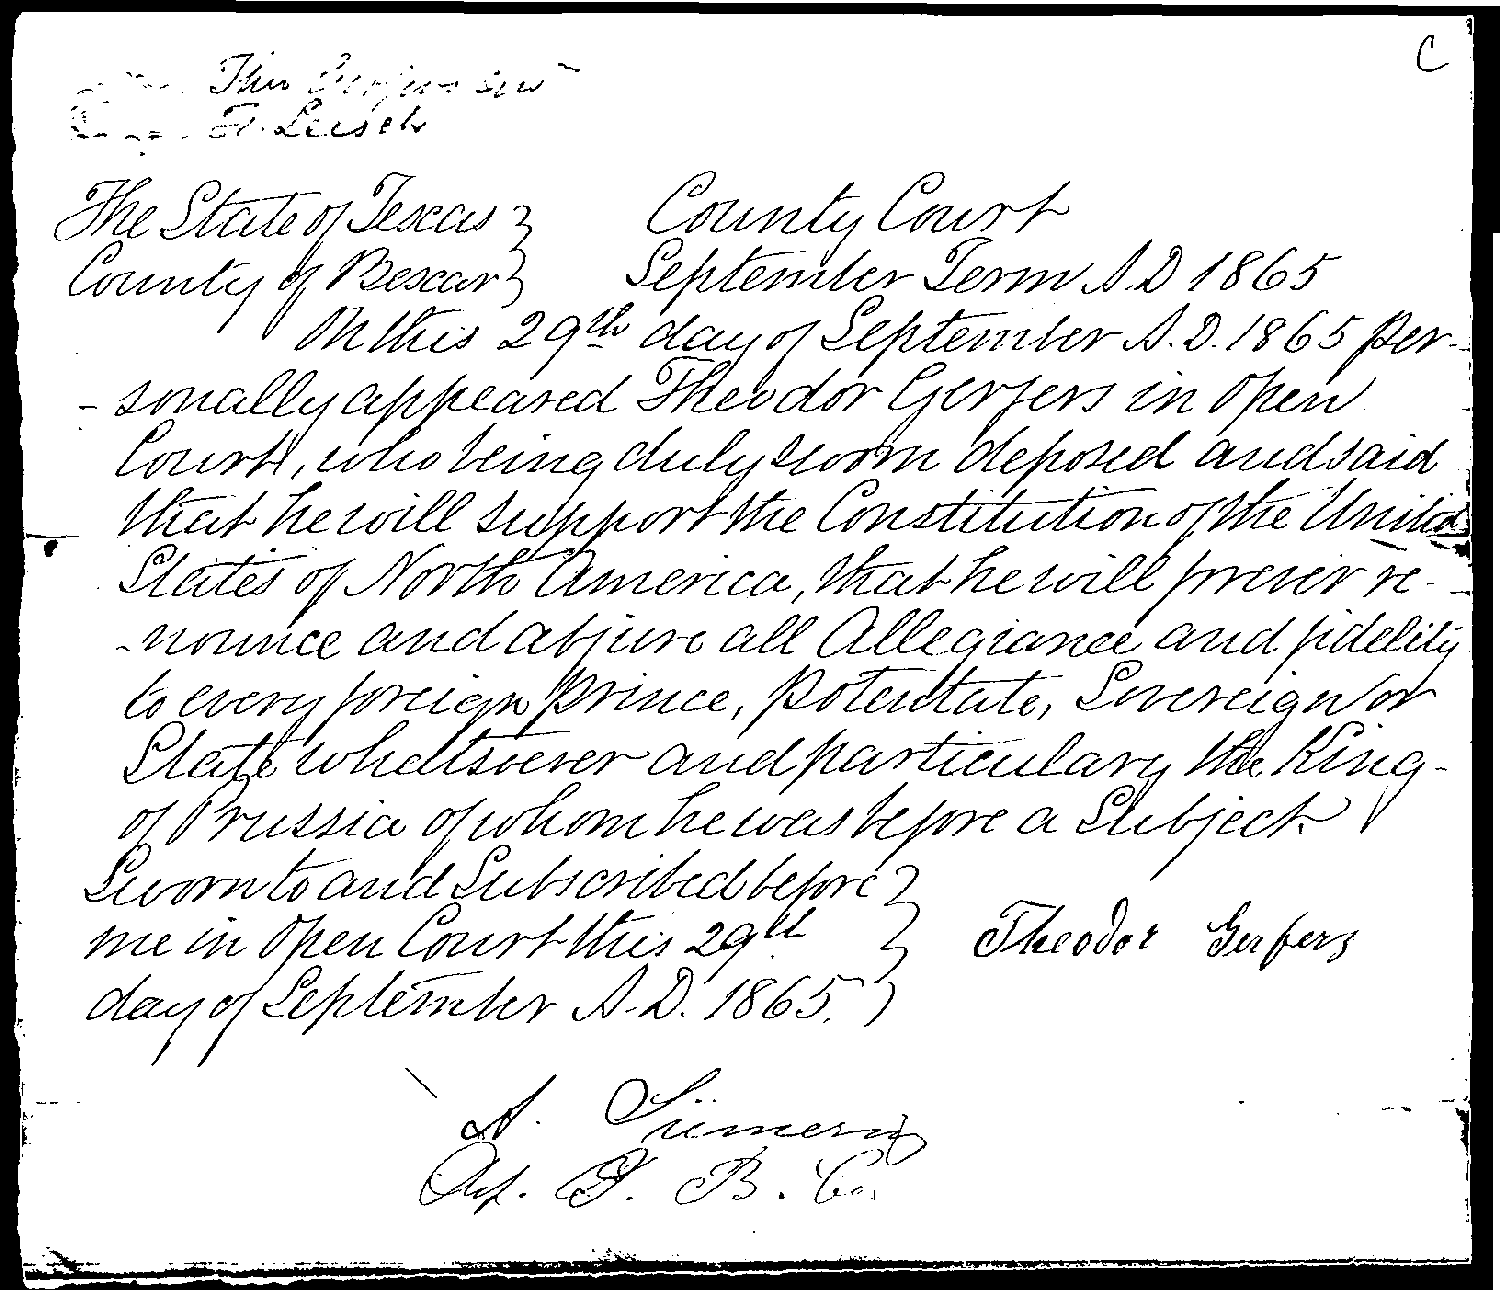 C
Theo Gerfers
F. Leisch
The State of Texas } County Court
County of Bexar } September Term A.D 1865
On this 29th day of September A.D. 1865 per-
-sonally appeared Theodor Gerfers in open
Court, who being duly sworn deposed and said
that he will support the Constitution of the United
States of North America, that he will prever re-
-nounce and abjure all Allegiance and fidelity
to every foreign Prince, Potentate, Sovereign or
State whattsoever and particulary the King
of Prussia of whom he was before a Subject
Sworn to and Subscribed before }
me in open Court this 29th } Theodor Gerfers
day of September A.D. 1865. }
A. Siemering
B. Co.